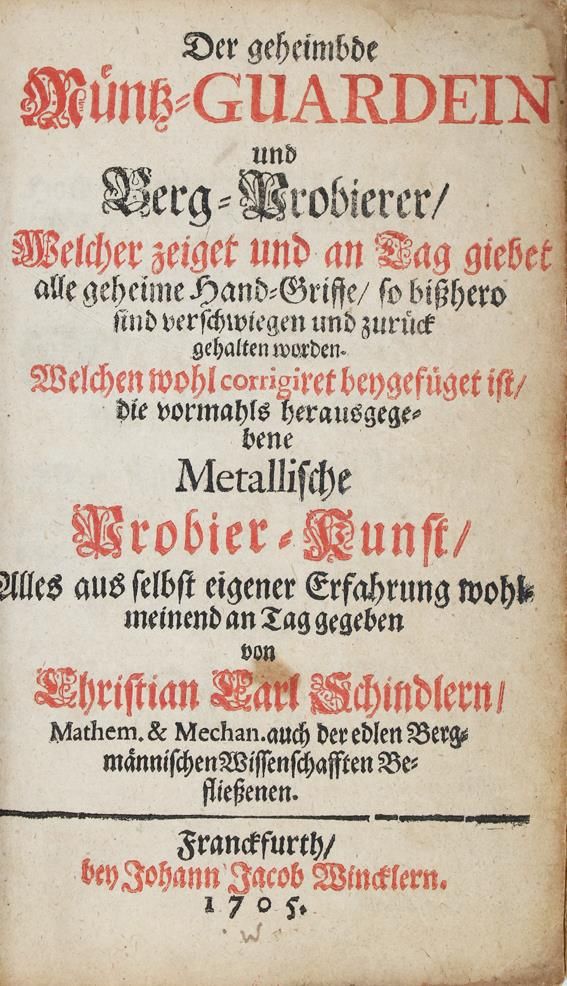 Der geheimbde
Müntz-GUARDEIN
und
Berg-Probierer/
Welcher zeiget und an Tag giebet
alle geheime Hand-Griffe/ so bißhero
sind verschwiegen und zurück
gehalten worden.
Welchen wohl corrigiret beygefüget ist/
die vormahls herausgege-
bene
Metallische
Probier-Kunst/
Alles aus selbst eigener Erfahrung wohl-
meinend an Tag gegeben
von
Christian Carl Schindlern/
Mathem. & Mechan. auch der edlen Berg-
männischen Wissenschafften Be-
fließenen.
Franckfurth/
bey Johann Jacob Wincklern.
1705.